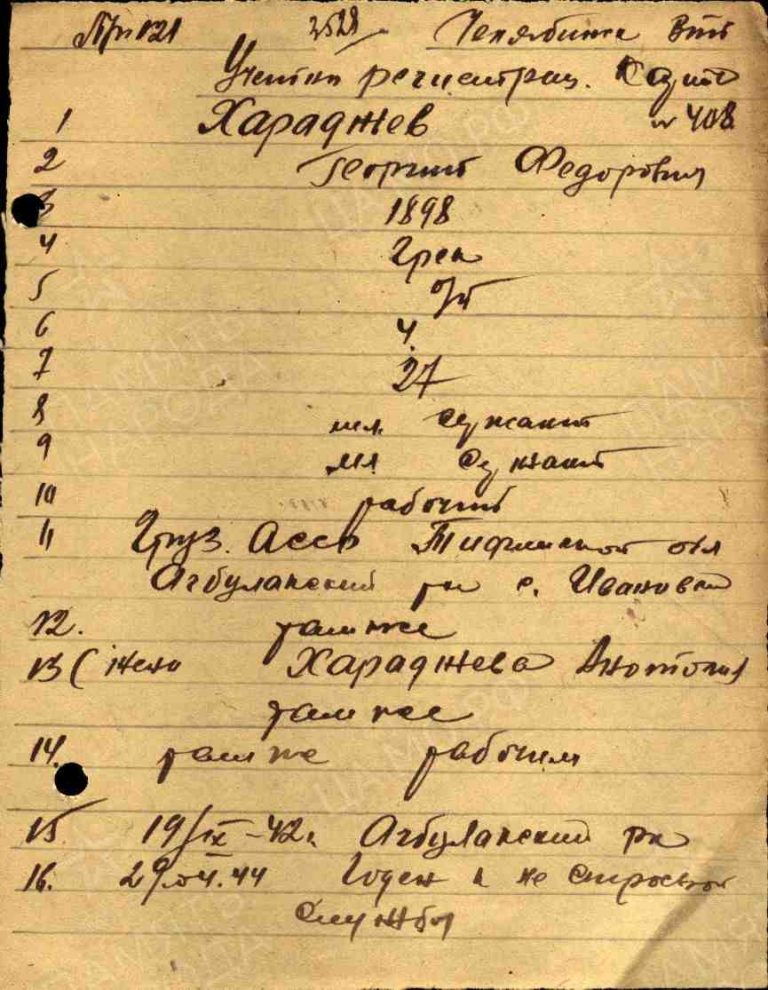 Челябинск ВПП
Учетно регистрац. Карта
1 Хараджев № 408
2 Георгий Федорович
3 1898
4 Грек
5 б/п
6 4
7 27
8 мл. сержант
9 мл сержант
10 рабочий
11 Груз. АССР Тифлиской обл
Агбулакский рн с. Ивановка
12. там же
13 (жена Хараджева
там же
14. там же рабочим
15 19/IX-42г Агбулакский рк
16. 29.04.44 Годен к не строевой
службы